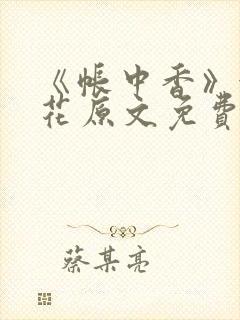 《帐中香》
花原文免费
蔡某亮